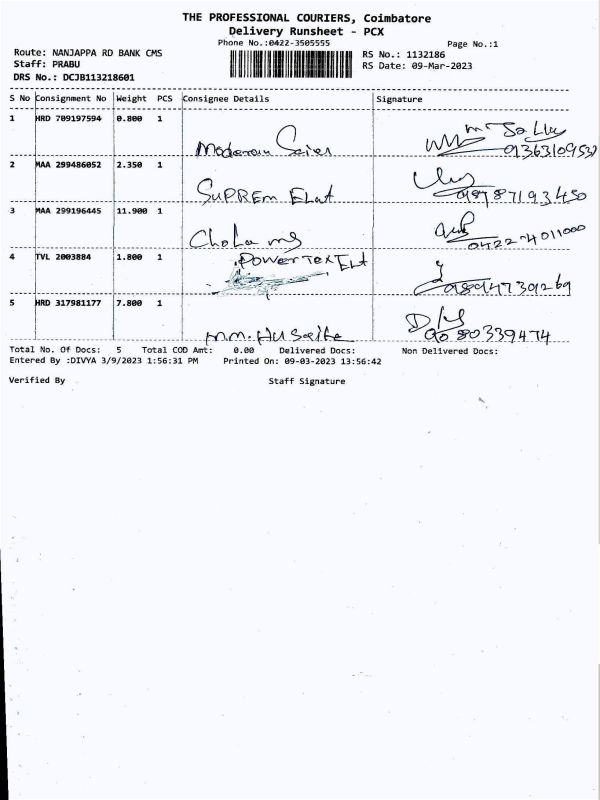 THE PROFESSIONAL COURIERS, Coimbatore
Delivery Runsheet - PCX
Phone No.:0422-3505555 Page No.:1
Route: NANJAPPA RD BANK CMS RS No.: 1132186
Staff: PRABU RS Date: 09-Mar-2023
DRS No.: DCJB113218601
S No Consignment No Weight PCS Consignee Details Signature
1 HRD 709197594 0.800 1
Moderan
2 MAA 299486052 2.350 1
SUPREM ELat
3 MAA 299196445 11.900 1
Chola ms 0422-4011000
4 TVL 2003884 1.800 1 POWERTEX ELt
9894739269
5 HRD 317981177 7.800 1
m.m. 9080339474
Total No. Of Docs: 5 Total COD Amt: 0.00 Delivered Docs: Non Delivered Docs:
Entered By :DIVYA 3/9/2023 1:56:31 PM Printed On: 09-03-2023 13:56:42
Verified By Staff Signature